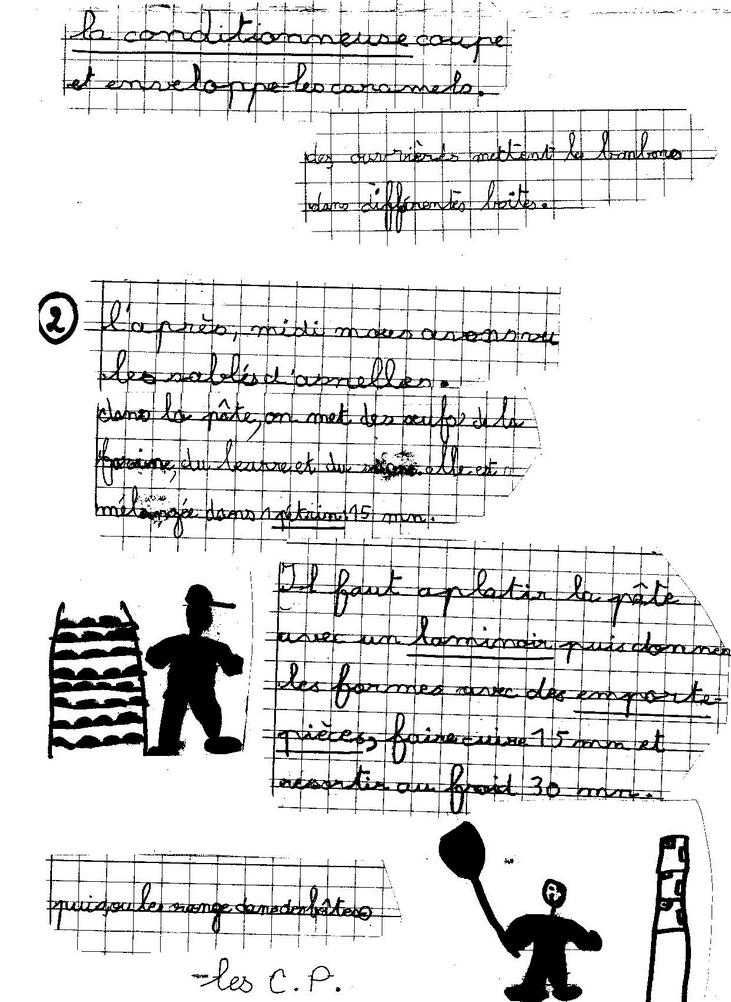 la conditionneuse coupe
et enveloppe les caramels.
des ouvrières mettent les bonbons
dans différentes boîtes.
2
l'après, midi nous avons vu
les sablés d'asnelles.
dans la pâte, on met des œufs de la
farine, du beurre et du elle est
mélangée dans 1 pétrin 15 mn.
Il faut aplatir la pâte
avec un laminoir puis donner
les formes avec des emporte-
pièces, faire cuire 15 mn et
ressortir au froid 30 mn.
puis, on les range dans des boîtes
-les C.P.